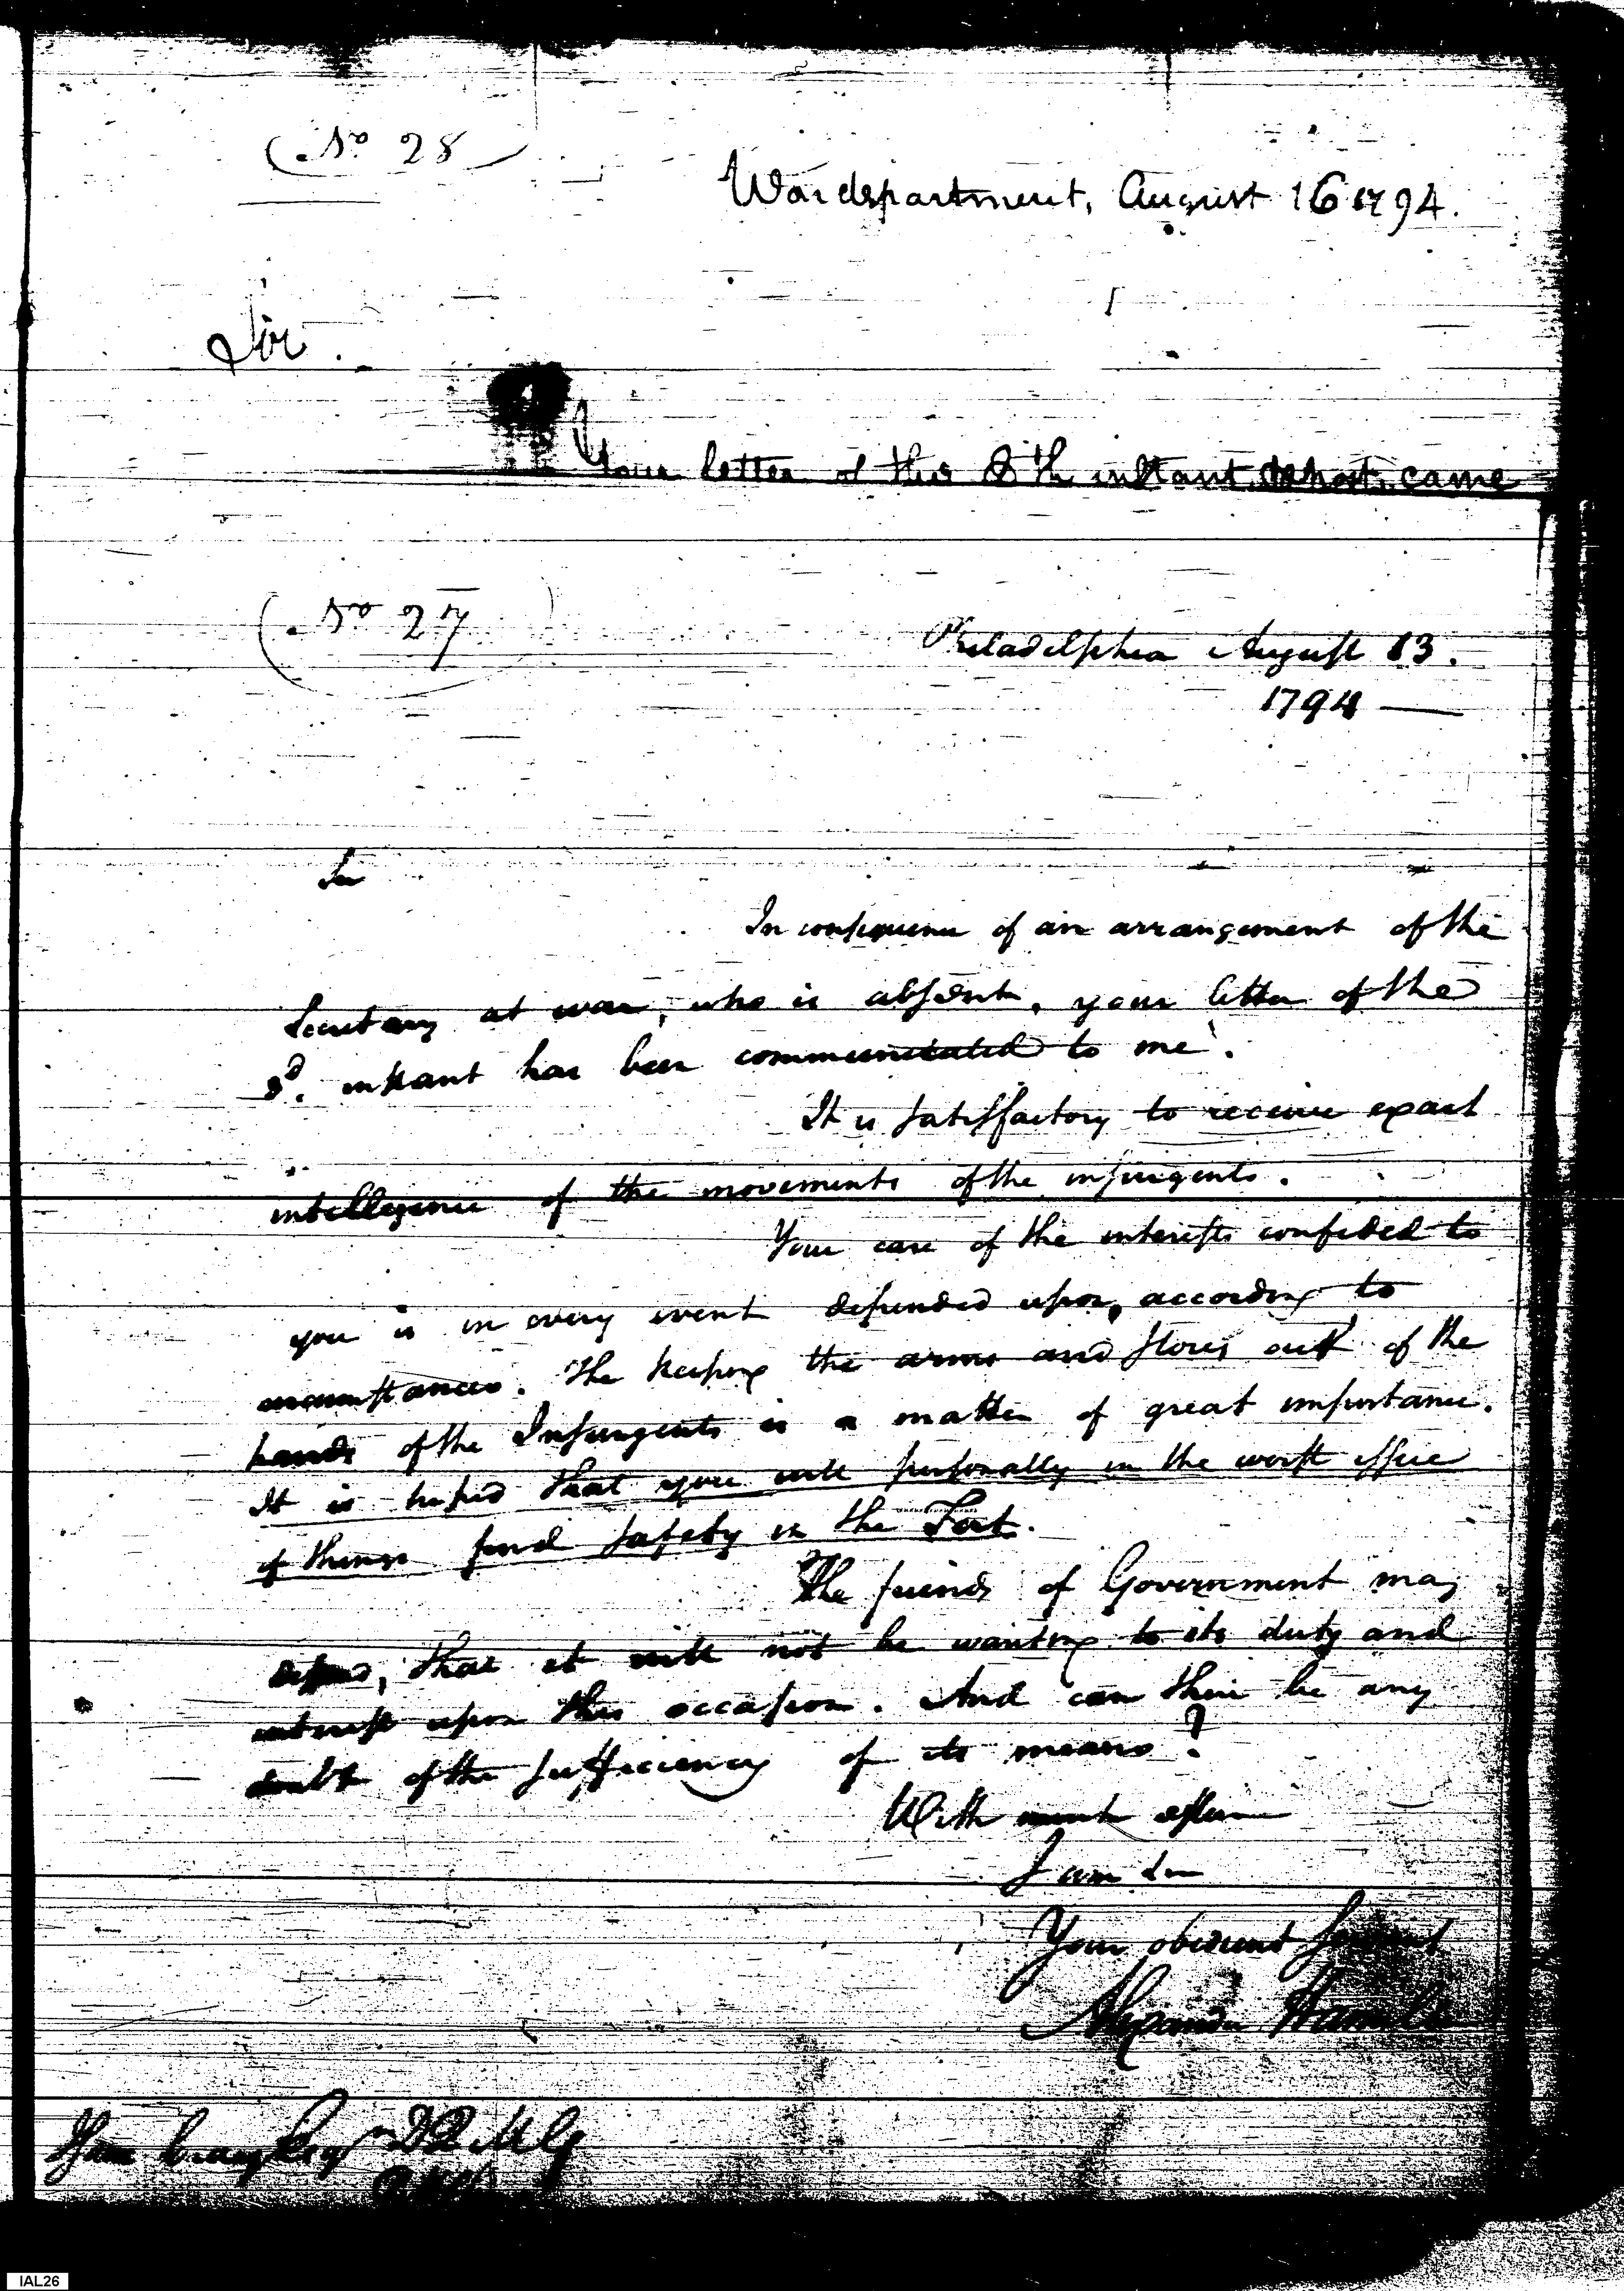 (No 28)
War department, August 16 1794.
Sir.
Your letter of the 8th instant came
(No 27)
Philadelphia August 13.
1794 —
Sir
In consequence of an arrangement of the
Secretary at war, who is absent, your letter of the
3d. instant has been communicated to me.
It is satisfactory to receive exact
intelligence of the movements of the insurgents.
Your care of the interests confided to
you is in every event depended upon, according to
circumstances. The keeping the arms and stores out of the
hands of the Insurgents is a matter of great importance.
It is hoped that you will personally in the worst issue
of things find safety in the Fort.
The friends of Government may
depend, that it will not be wanting to its duty and
interest upon this occasion. And can there be any
doubt of the sufficiency of its means?
With much esteem
I am Sir
Your obedient servant
Alexander Hamil
Isaac Craig Esqr D Q M G
IAL26